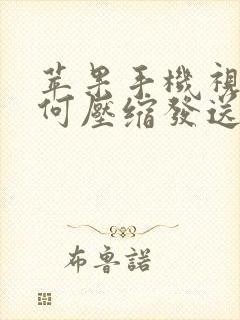 苹果手機視
何壓缩發送
布鲁諾